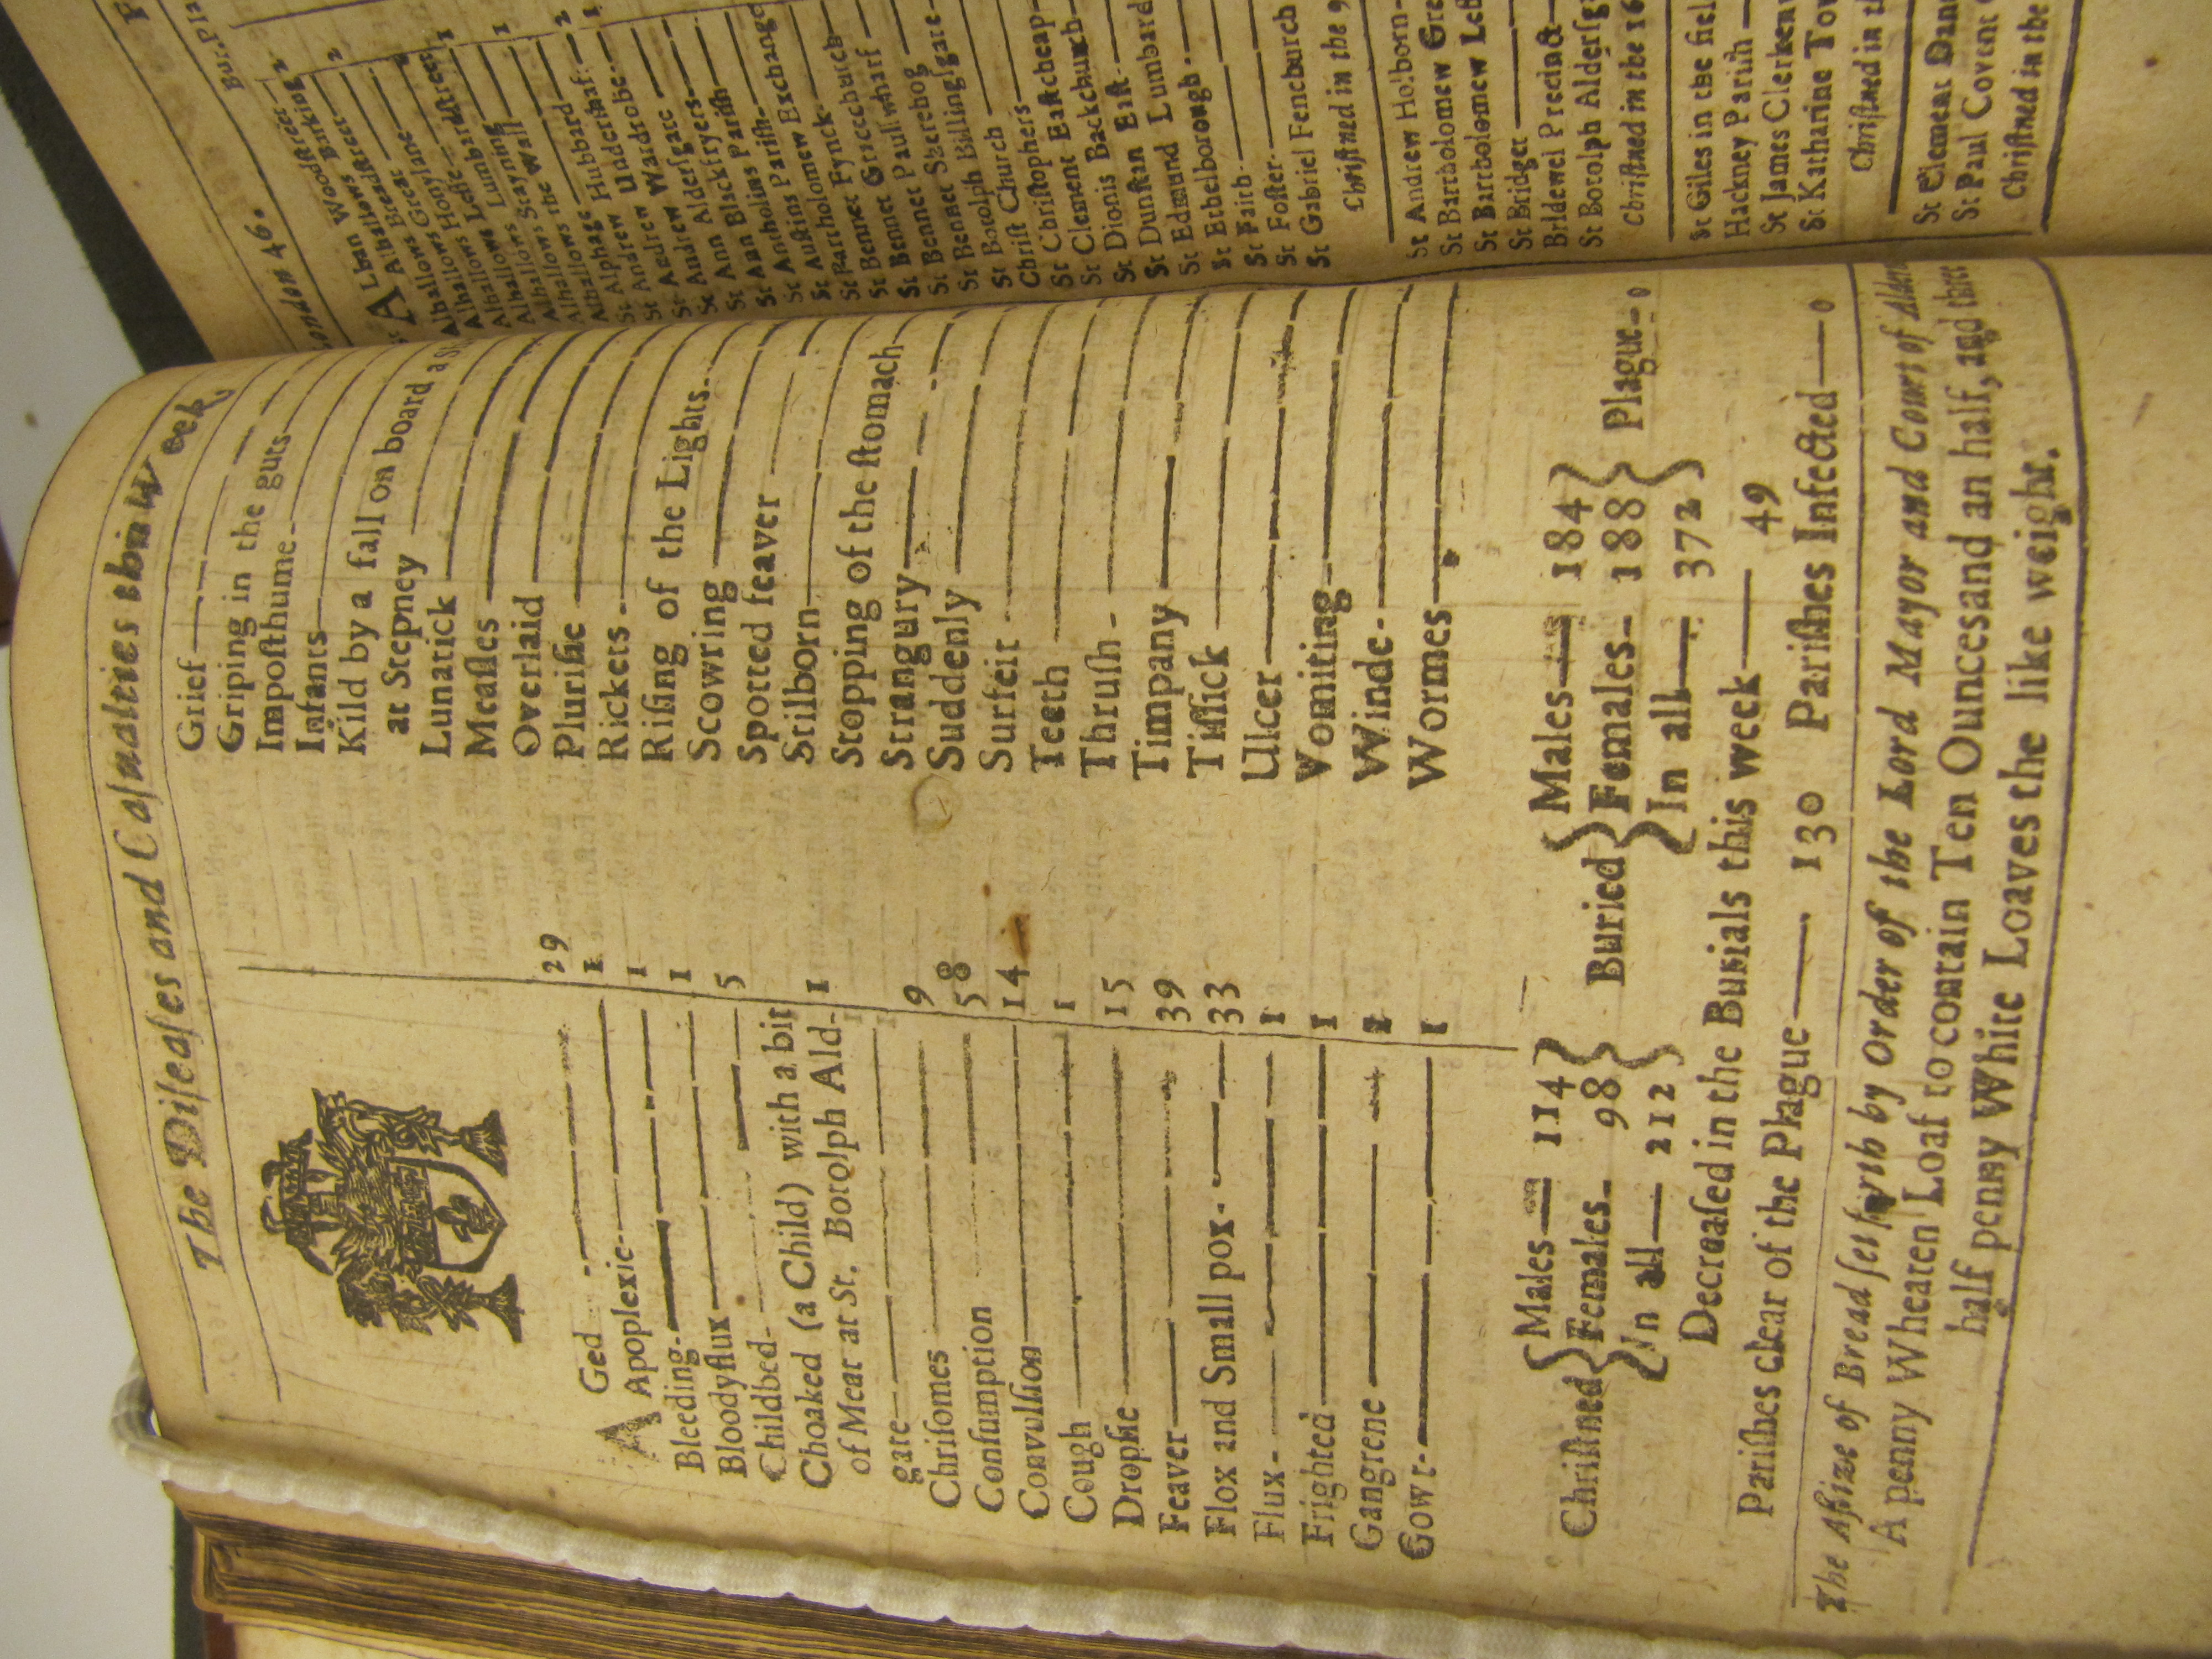 The Diſeaſes and Caſualties this Week
AGed 29
Apoplexie 1
Bleeding 1
Bloodyflux 1
Childbed 5
Choaked (a Child) with a bit
of Meat at St. Botolph Ald-
gate 1
Chriſomes 9
Conſumption 58
Convulſion 14
Cough 1
Dropſie 15
Feaver 39
Flox and Small pox 33
Flux 1
Frighted 1
Gangrene
Gowt 1
Grief
Griping in the guts
Impoſthume
Infants
Kild by a fall on board a
at Stepney
Lunatick
Meaſles
Overlaid
Pluriſie
Rickets
Riſing of the Lights
Scowring
Spotted feaver
Stilborn
Stopping of the ſtomach
Strangury
Suddenly
Surfeit
Teeth
Thruſh
Timpany
Tiſſick
Ulcer
Vomiting
Winde
Wormes
Chriſtned { Males 114 Females 98 In all 212 }
Buried { Males 184 Females 188 In all 372 } Plague 0
Decreaſed in the Burials this week 49
Pariſhes clear of the Plague 130 Pariſhes Infected 0
The Aſsize of Bread ſet forth by Order of the Lord Mayor and Court of
A penny Wheaten Loaf to contain Ten Ounces and an half, and three
half penny White Loaves the like weight.
London 46.
ALban Woodſtreet
Alhallows Barking 2
Alhallows Breadſtreet 2
Alhallows Great
Alhallows Honylane
Alhallows Leſſe
Alhallows Lumbardſtreet 1
Alhallows Stayning
Alhallows the Wall 1
Alphage
Andrew Hubbard 2
St Andrew Underſhaf 1
St Andrew Wardrobe
St Ann Alderſgate
St Ann Blackfryers
St Antholins Pariſh
St Auſtins Pariſh
St Bartholomew Exchange
St Bennet Fynck
St Bennet Gracechurch
St Bennet Paulſwharf
St Bennet Sherehog
St Botolph Billingſgate
Chriſt Church
St Chriſtophers
St Clement Eaſtcheap
St Dionis Backchurch
St Dunſtan Eaſt
St Edmund Lumbard
St Ethelborough
St Faith
St Foſter
St Gabriel Fenchurch
Chriſtned in the 9
St Andrew Holborn
St Bartholomew Gre
St Bartholomew Leſſ
St Bridget
Bridewel Precinct
St Botolph Alderſg
Chriſtned in the 16
St Giles in the fiel
Hackney Pariſh
St James Clerken
St Katharine Tow
Chriſtned in
St Clement Dane
St Paul Covent
Chriſtned in the